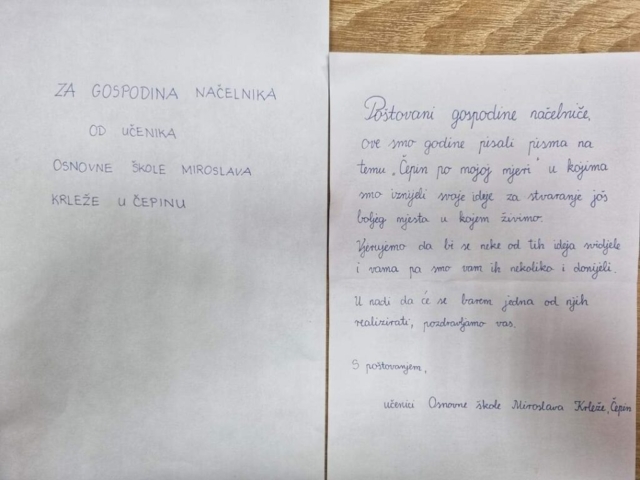 ZA GOSPODINA NAČELNIKA
OD UČENIKA
OSNOVNE ŠKOLE MIROSLAVA
KRLEŽE U ČEPINU
Poštovani gospodine načelniče,
ove smo godine pisali pisma na
temu „Čepin po mojoj mjeri" u kojima
smo iznijeli svoje ideje za stvaranje još
boljeg mjesta u kojem živimo.
Vjerujemo da bi se neke od tih ideja svidjele
i vama pa smo vam ih nekoliko i donijeli.
U nadi da će se barem jedna od njih
realizirati, pozdravljamo vas.
S poštovanjem,
učenici Osnovne škole Miroslava Krleže, Čepin